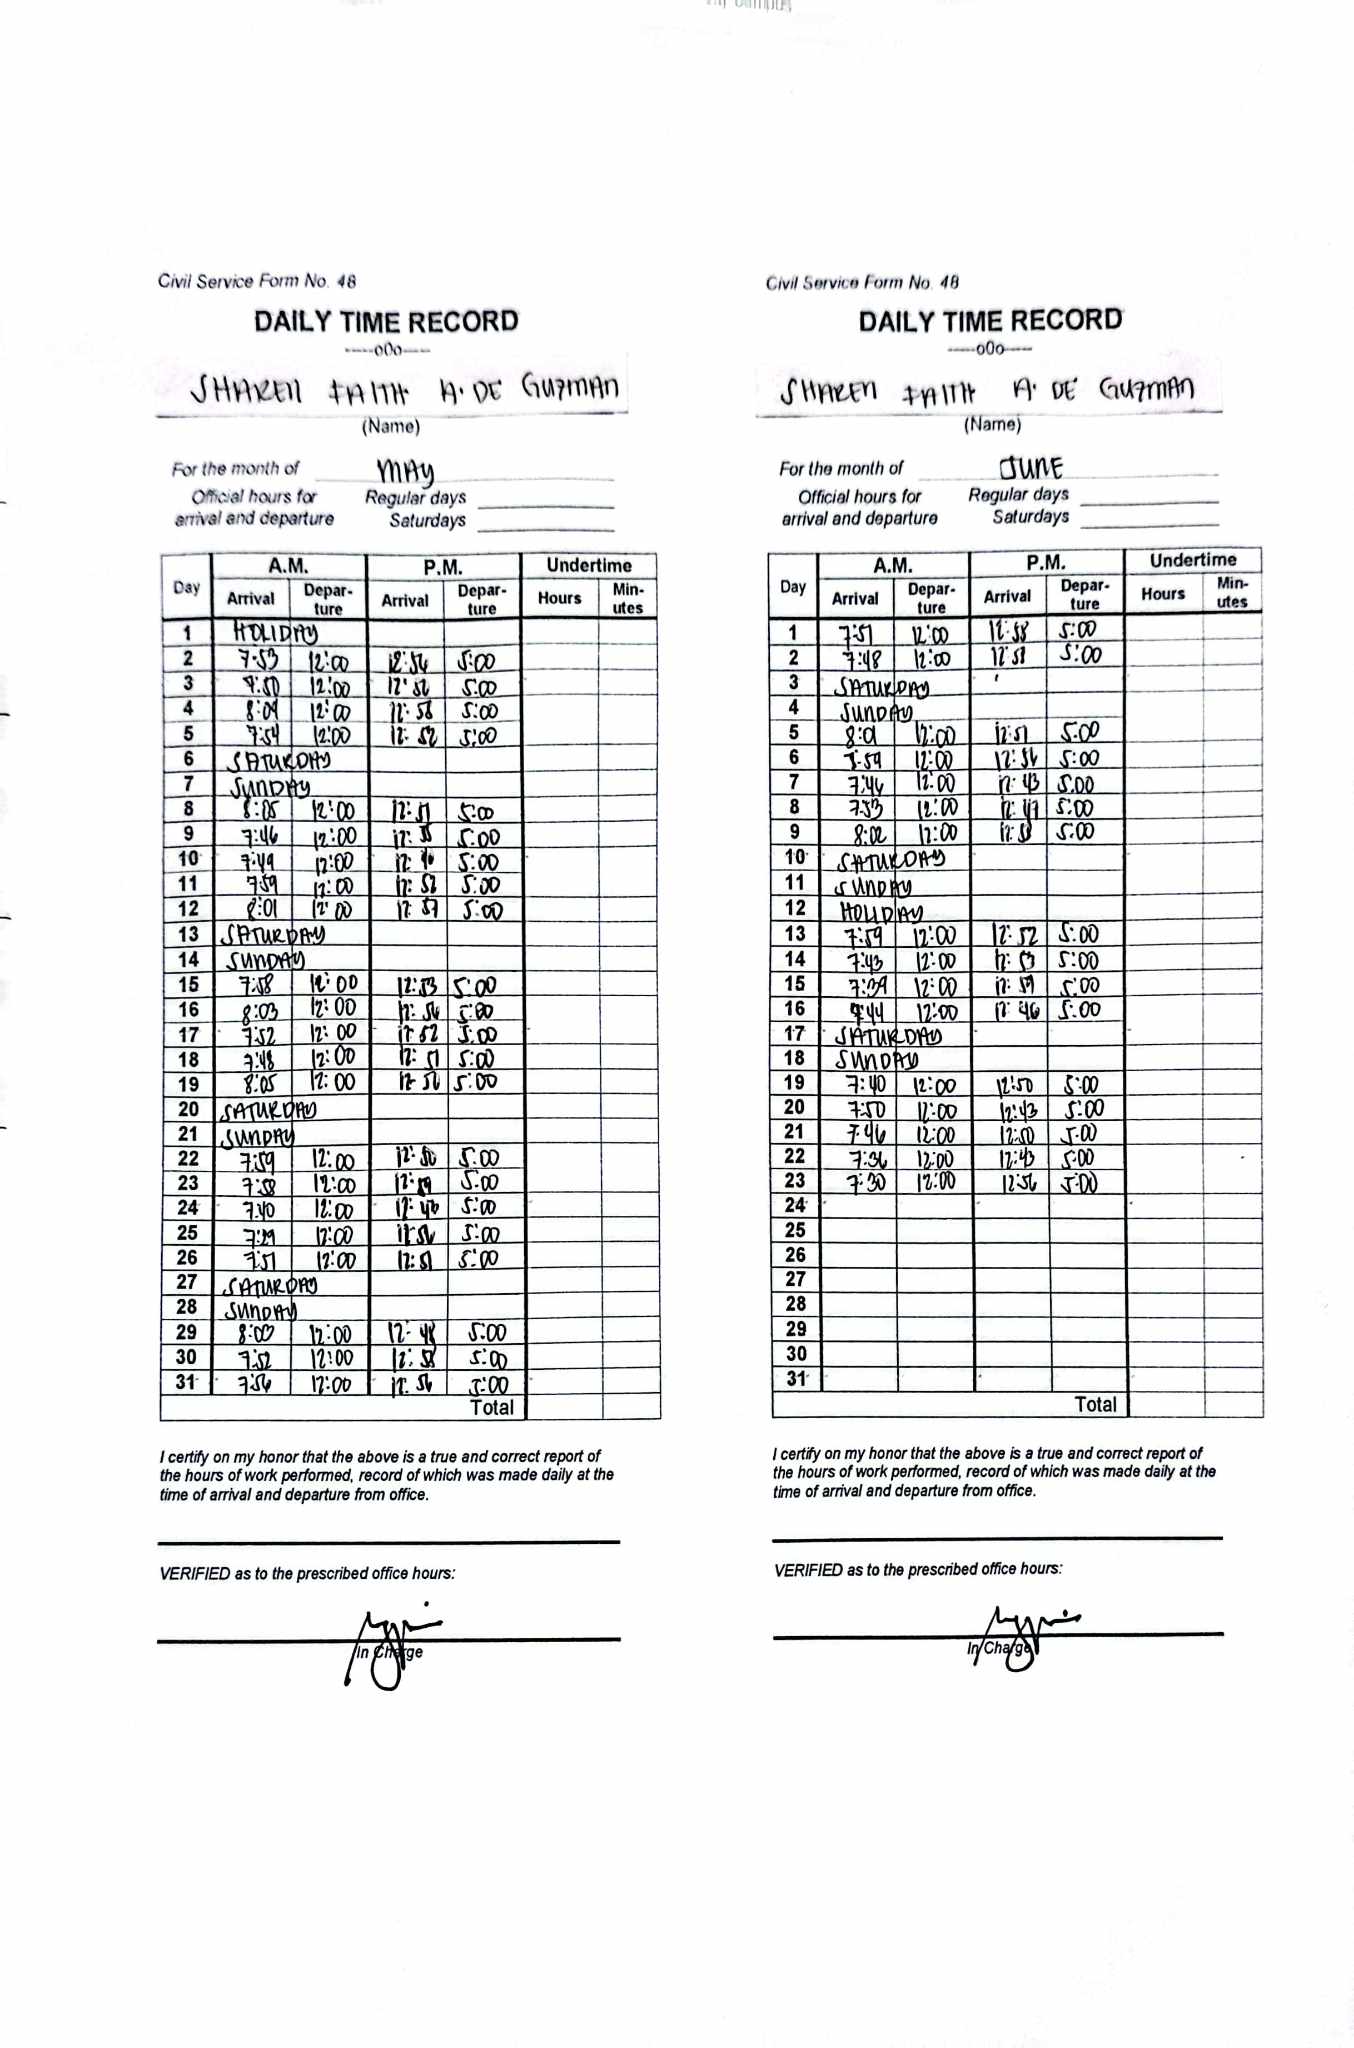 Civil Service Form No. 48
DAILY TIME RECORD
-----o0o-----
SHAREN FAITH A. DE GUZMAN
(Name)
For the month of MAY
Official hours for Regular days
arrival and departure Saturdays
Day A.M. P.M. Undertime
Arrival Depar-ture Arrival Depar-ture Hours Min-utes
1 HOLIDAY
2 7:53 12:00 12:56 5:00
3 7:50 12:00 12:56 5:00
4 8:04 12:00 12:58 5:00
5 7:54 12:00 12:52 5:00
6 SATURDAY
7 SUNDAY
8 8:05 12:00 12:51 5:00
9 7:46 12:00 5:00
10 7:49 12:00 5:00
11 7:59 12:00 12:52 5:00
12 8:01 12:00 12:57 5:00
13 SATURDAY
14 SUNDAY
15 7:58 12:00 12:53 5:00
16 8:03 12:00 12:56 5:00
17 7:52 12:00 12:52 5:00
18 7:48 12:00 12:51 5:00
19 8:05 12:00 12:56 5:00
20 SATURDAY
21 SUNDAY
22 7:59 12:00 12:50 5:00
23 7:58 12:00 12:59 5:00
24 7:40 12:00 12:46 5:00
25 7:29 12:00 12:56 5:00
26 7:51 12:00 12:51 5:00
27 SATURDAY
28 SUNDAY
29 8:00 12:00 12:48 5:00
30 7:52 12:00 12:58 5:00
31 7:56 12:00 12:56 5:00
Total
I certify on my honor that the above is a true and correct report of
the hours of work performed, record of which was made daily at the
time of arrival and departure from office.
VERIFIED as to the prescribed office hours:
In Charge
Civil Service Form No. 48
DAILY TIME RECORD
-----o0o-----
SHAREN FAITH A. DE GUZMAN
(Name)
For the month of JUNE
Official hours for Regular days
arrival and departure Saturdays
Day A.M. P.M. Undertime
Arrival Depar-ture Arrival Depar-ture Hours Min-utes
1 7:51 12:00 12:58 5:00
2 7:48 12:00 12:51 5:00
3 SATURDAY
4 SUNDAY
5 8:01 12:00 12:51 5:00
6 7:59 12:00 12:56 5:00
7 7:46 12:00 12:43 5:00
8 7:53 12:00 12:47 5:00
9 8:02 12:00 5:00
10 SATURDAY
11 SUNDAY
12 HOLIDAY
13 7:59 12:00 12:52 5:00
14 7:43 12:00 12:53 5:00
15 7:39 12:00 12:59 5:00
16 7:44 12:00 12:46 5:00
17 SATURDAY
18 SUNDAY
19 7:40 12:00 12:50 5:00
20 7:50 12:00 12:43 5:00
21 7:46 12:00 12:50 5:00
22 7:36 12:00 12:43 5:00
23 7:30 12:00 12:56 5:00
24
25
26
27
28
29
30
31
Total
I certify on my honor that the above is a true and correct report of
the hours of work performed, record of which was made daily at the
time of arrival and departure from office.
VERIFIED as to the prescribed office hours:
In Charge